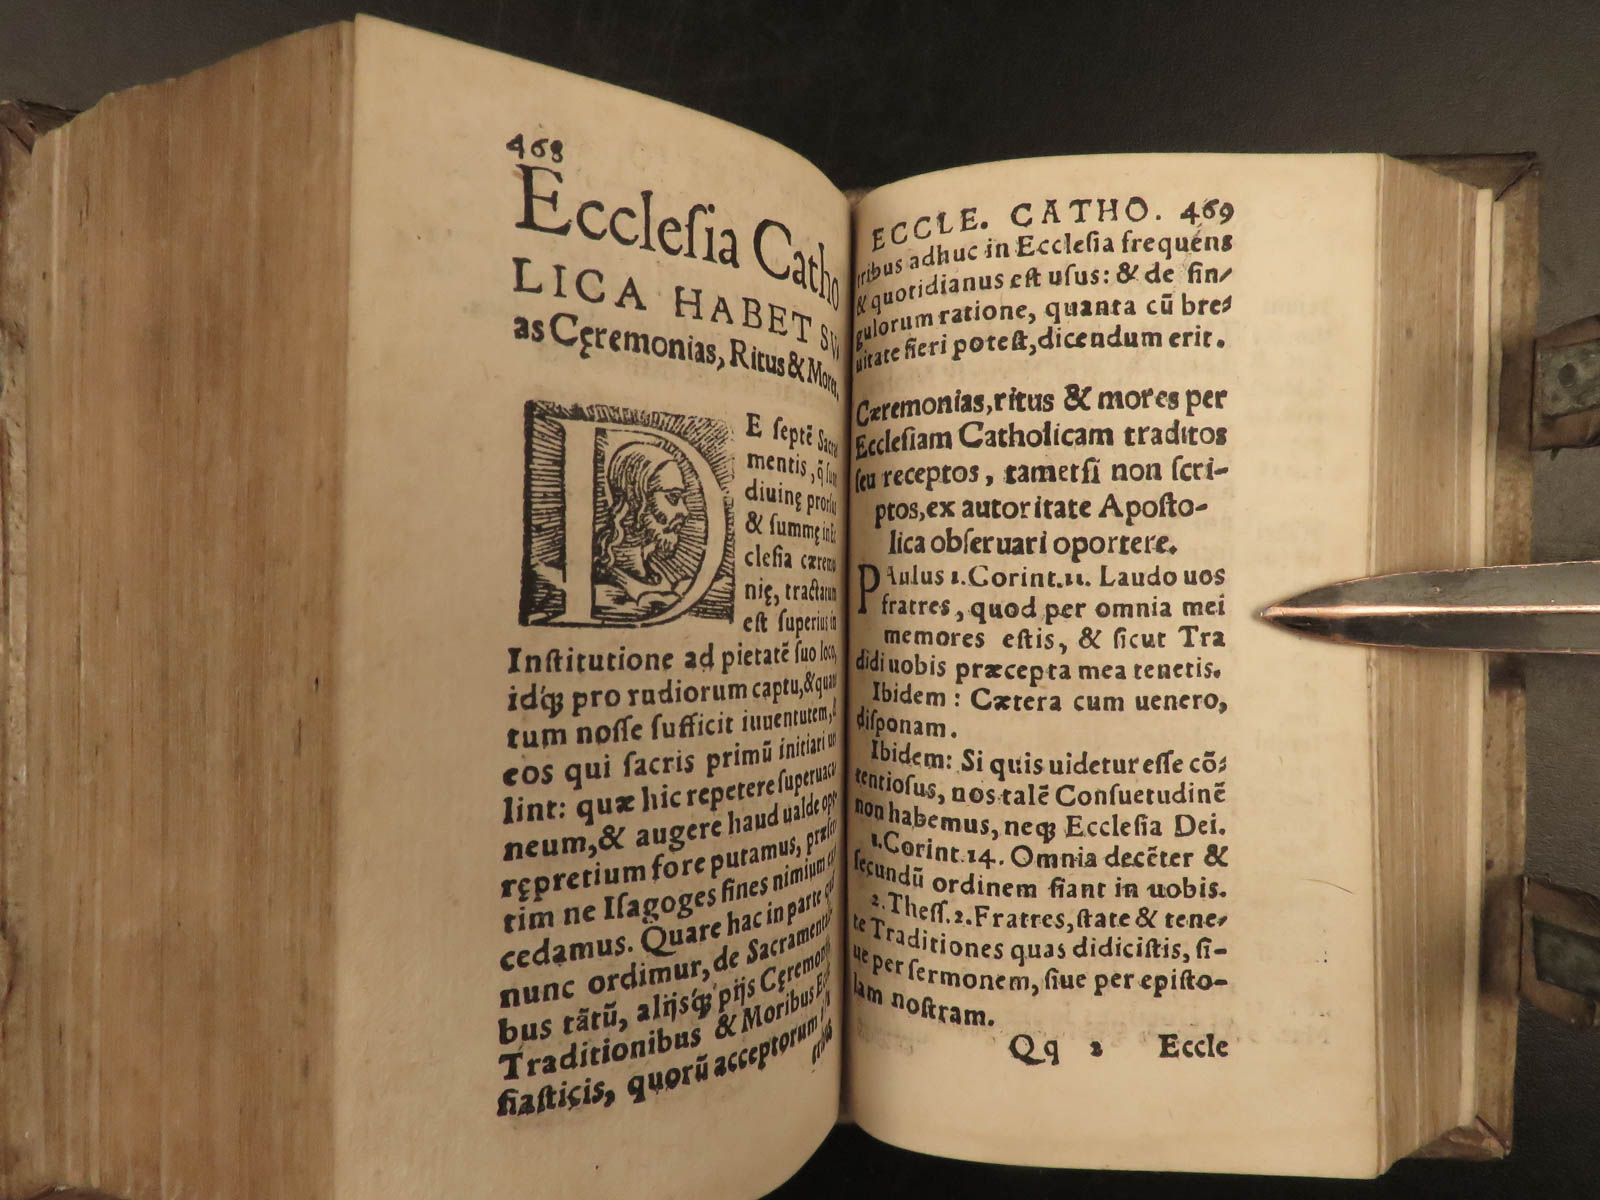 468
Eccleſia Catho
LICA HABET SV
as Cęremonias, Ritus & Mores.
DE ſeptẽ Sacra
mentis, q̃ ſunt
diuinę prorſus
& ſummę in Ec
cleſia cæremo
nię, tractatum
eſt ſuperius in
Inſtitutione ad pietatẽ ſuo loco,
idq́ꝫ pro rudiorum captu, & quan
tum noſſe ſufficit iuuentutem, &
eos qui ſacris primũ initiari uo
lint: quæ hic repetere ſuperuaca
neum, & augere haud ualde ope
rępretium fore putamus, præſer
tim ne Iſagoges fines nimium ex
cedamus. Quare hac in parte qui
nunc ordimur, de Sacramenta
bus tãtũ, alijsq́ꝫ pijs Cęremonijs
Traditionibus & Moribus Eccle
ſiaſticis, quorũ acceptorum
tribus
ECCLE. CATHO. 469
tribus adhuc in Eccleſia frequens
& quotidianus eſt uſus: & de ſin⸗
gulorum ratione, quanta cũ bre⸗
uitate fieri poteſt, dicendum erit.
Cæremonias, ritus & mores per
Eccleſiam Catholicam traditos
ſeu receptos, tametſi non ſcri-
ptos, ex autoritate Apoſto-
lica obſeruari oportere.
PAulus 1. Corint. 11. Laudo uos
fratres, quod per omnia mei
memores eſtis, & ſicut Tra
didi uobis præcepta mea tenetis.
Ibidem: Cætera cum uenero,
diſponam.
Ibidem: Si quis uidetur eſſe cõ⸗
tentioſus, nos talẽ Conſuetudinẽ
non habemus, neqꝫ Eccleſia Dei.
1. Corint. 14. Omnia decẽter &
ſecundũ ordinem fiant in uobis.
2. Theſſ. 2. Fratres, ſtate & tene⸗
te Traditiones quas didiciſtis, ſi-
ue per ſermonem, ſiue per epiſto-
lam noſtram.
Qq 2 Eccle